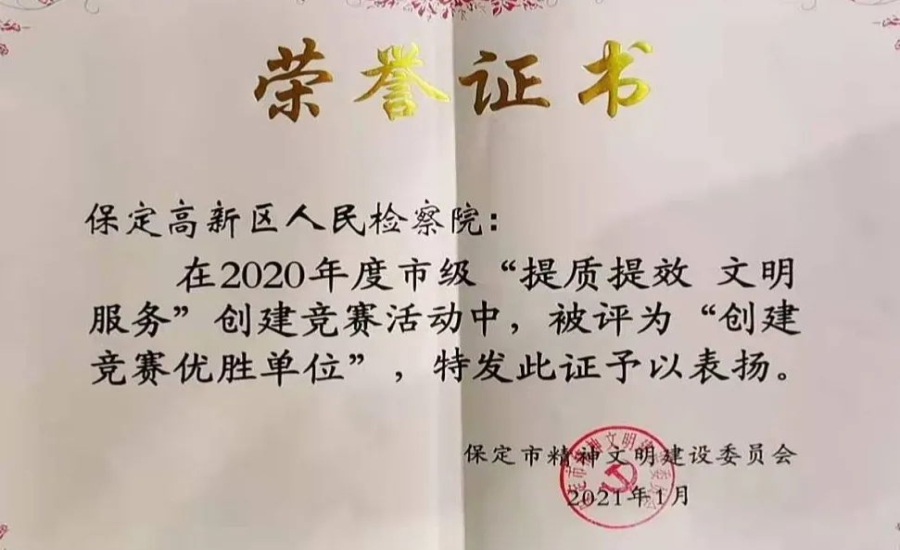 荣誉证书
保定高新区人民检察院：
在2020年度市级“提质提效 文明
服务”创建竞赛活动中，被评为“创建
竞赛优胜单位”，特发此证予以表扬。
保定市精神文明建设委员会
2021年1月